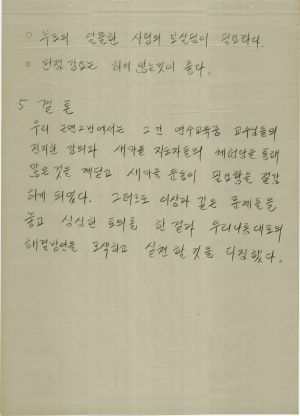 ○ 부모의 알뜰한 사랑의 보살핌이 필요하다.
○ 한정 강요는 하지 않는것이 좋다.
5. 결론
우리 2연2반에서는 그간 연수교육중 교수님들의
진지한 강의와 새마을 지도자들의 체험담을 통해
많은것을 깨닫고 새마을 운동이 필요함을 절감
하게 되었다. 그러므로 이상과 같은 문제들을
놓고 심심한 토의를 한 결과 우리나름대로의
해결방안을 모색하고 실천할것을 다짐했다.